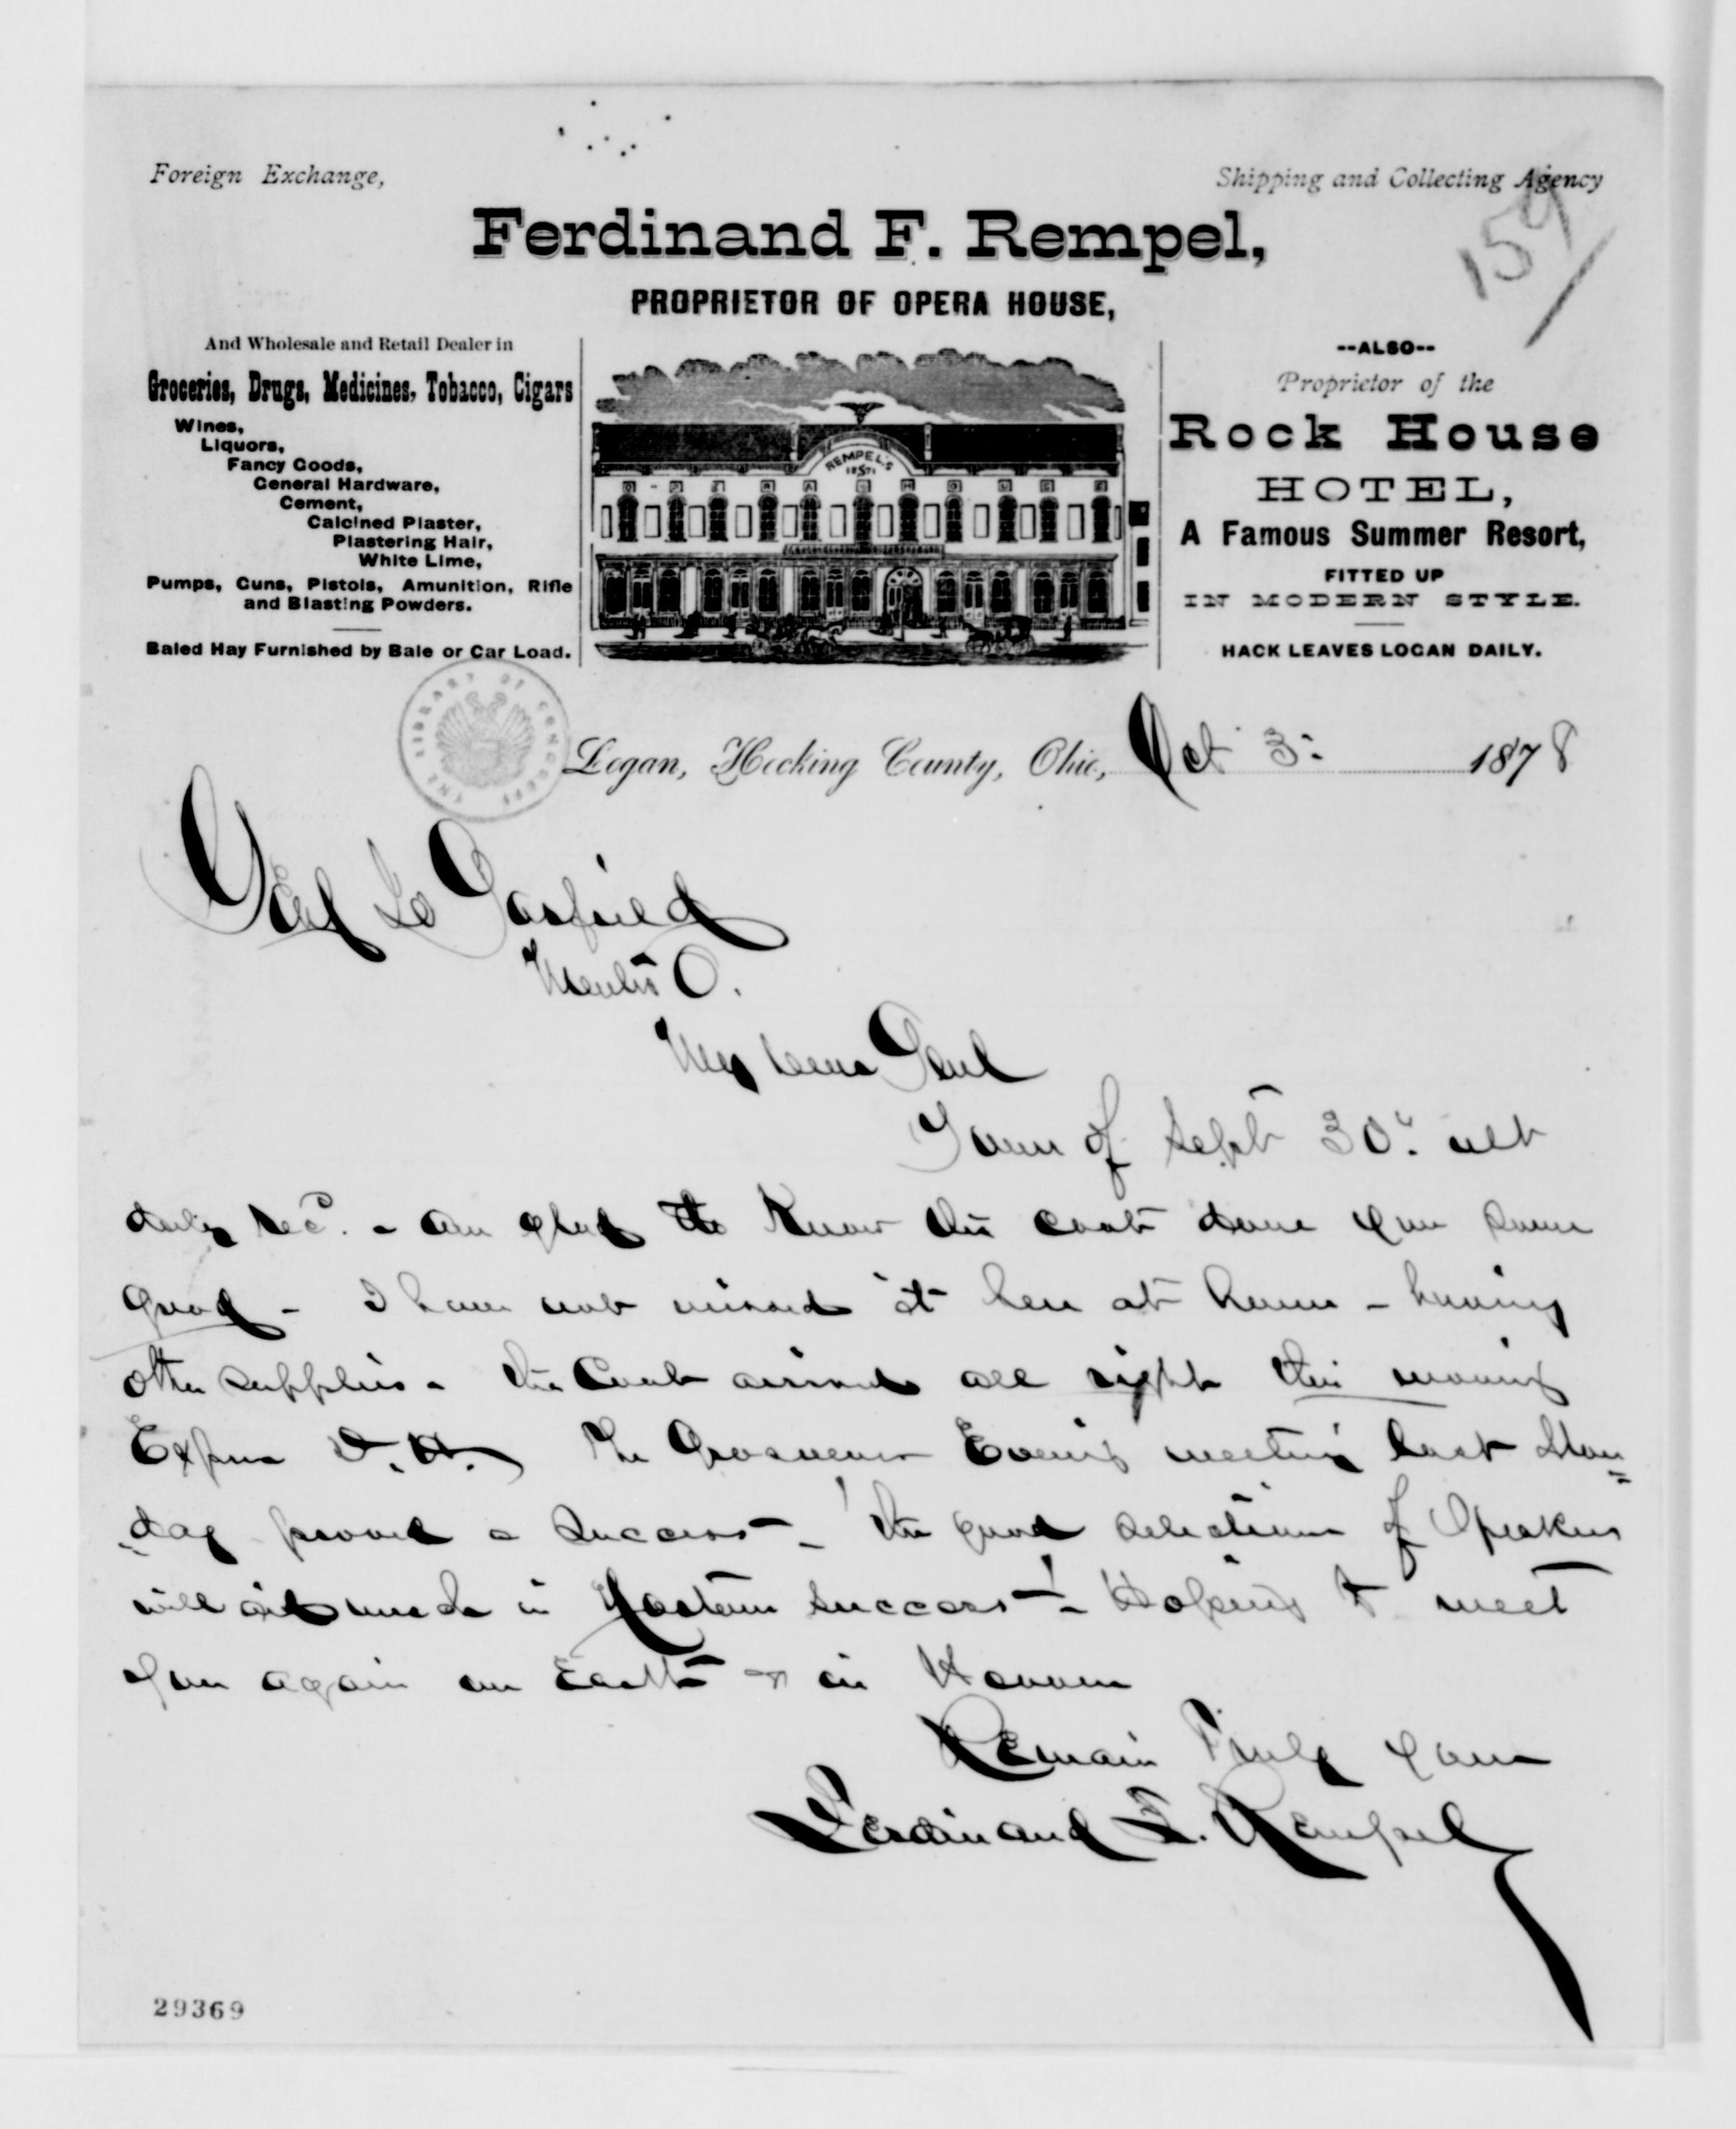 Foreign Exchange,
Shipping and Collecting Agency
159
Ferdinand F. Rempel,
PROPRIETOR OF OPERA HOUSE,
And Wholesale and Retail Dealer in
Groceries, Drugs, Medicines, Tobacco, Cigars
Wines,
Liquors,
Fancy Goods,
General Hardware,
Cement,
Calcined Plaster,
Plastering Hair,
White Lime,
Pumps, Guns, Pistols, Amunition, Rifle
and Blasting Powders.
Baled Hay Furnished by Bale or Car Load.
REMPEL'S
1871
OPERA HOUSE
--ALSO--
Proprietor of the
Rock House
HOTEL,
A Famous Summer Resort,
FITTED UP
IN MODERN STYLE.
HACK LEAVES LOGAN DAILY.
THE LIBRARY OF CONGRESS
Logan, Hocking County, Ohio, Oct 3. 1878
Genl Garfield
Mentor O.
My Dear Genl
Yours of Sept 30. ult
duly rec'd. - am glad to know the coat done you some
good - I have not missed it here at home - having
other supplies. The Coat arrived all right this morning
Express D. H. The Grosvenor Evening meeting last Mon=
=day proved a Success - ! The good selections of Speakers
will in Success - ! - Hoping to meet
you again on Earth & in Heaven
Remain Truly yours
Ferdinand F. Rempel
29369